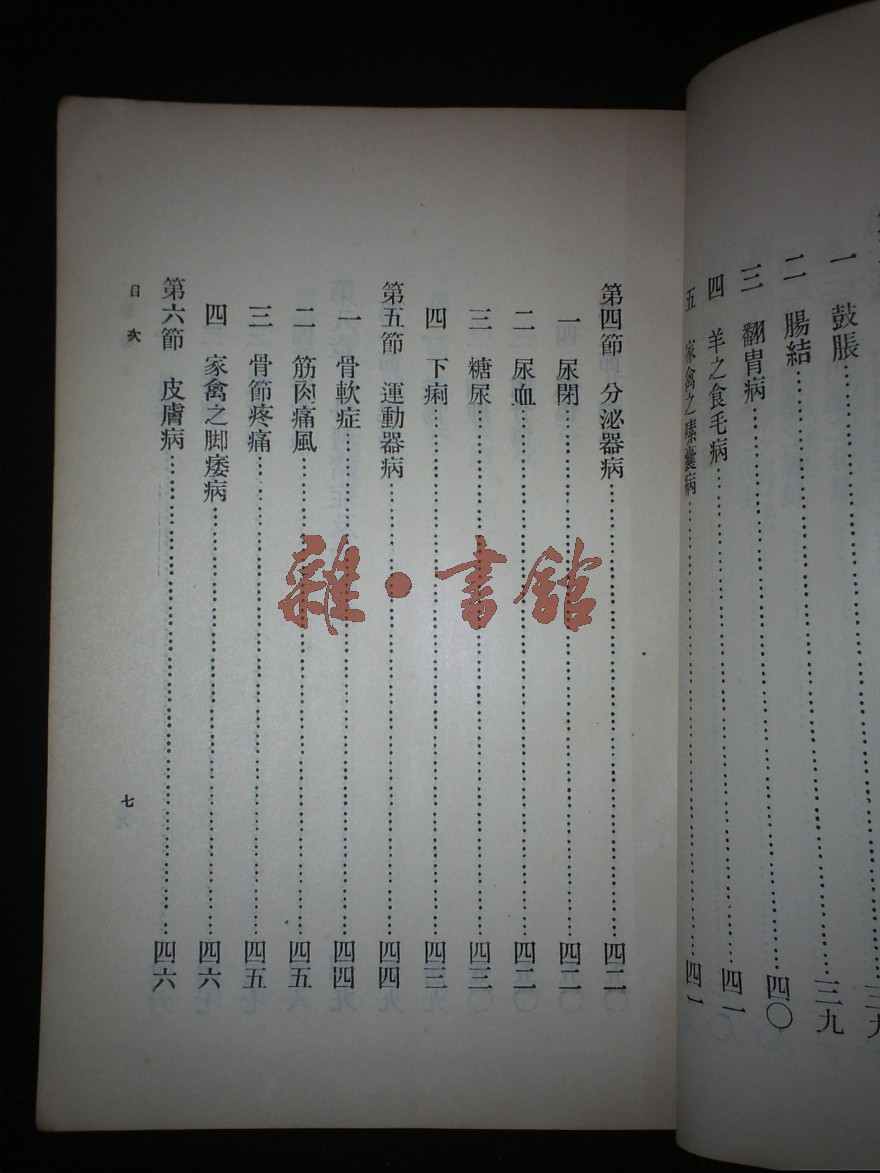 一 鼓脹……三九
二 腸結……三九
三 翻胃病……四〇
四 羊之食毛病……四一
五 家禽之嗉囊病……四一
第四節 分泌器病……四二
一 尿閉……四二
二 尿血……四二
三 糖尿……四三
四 下痢……四三
第五節 運動器病……四四
一 骨軟症……四四
二 筋肉痛風……四五
三 骨節疼痛……四五
四 家禽之脚痿病……四六
第六節 皮膚病……四六
目次
七
雜·書館